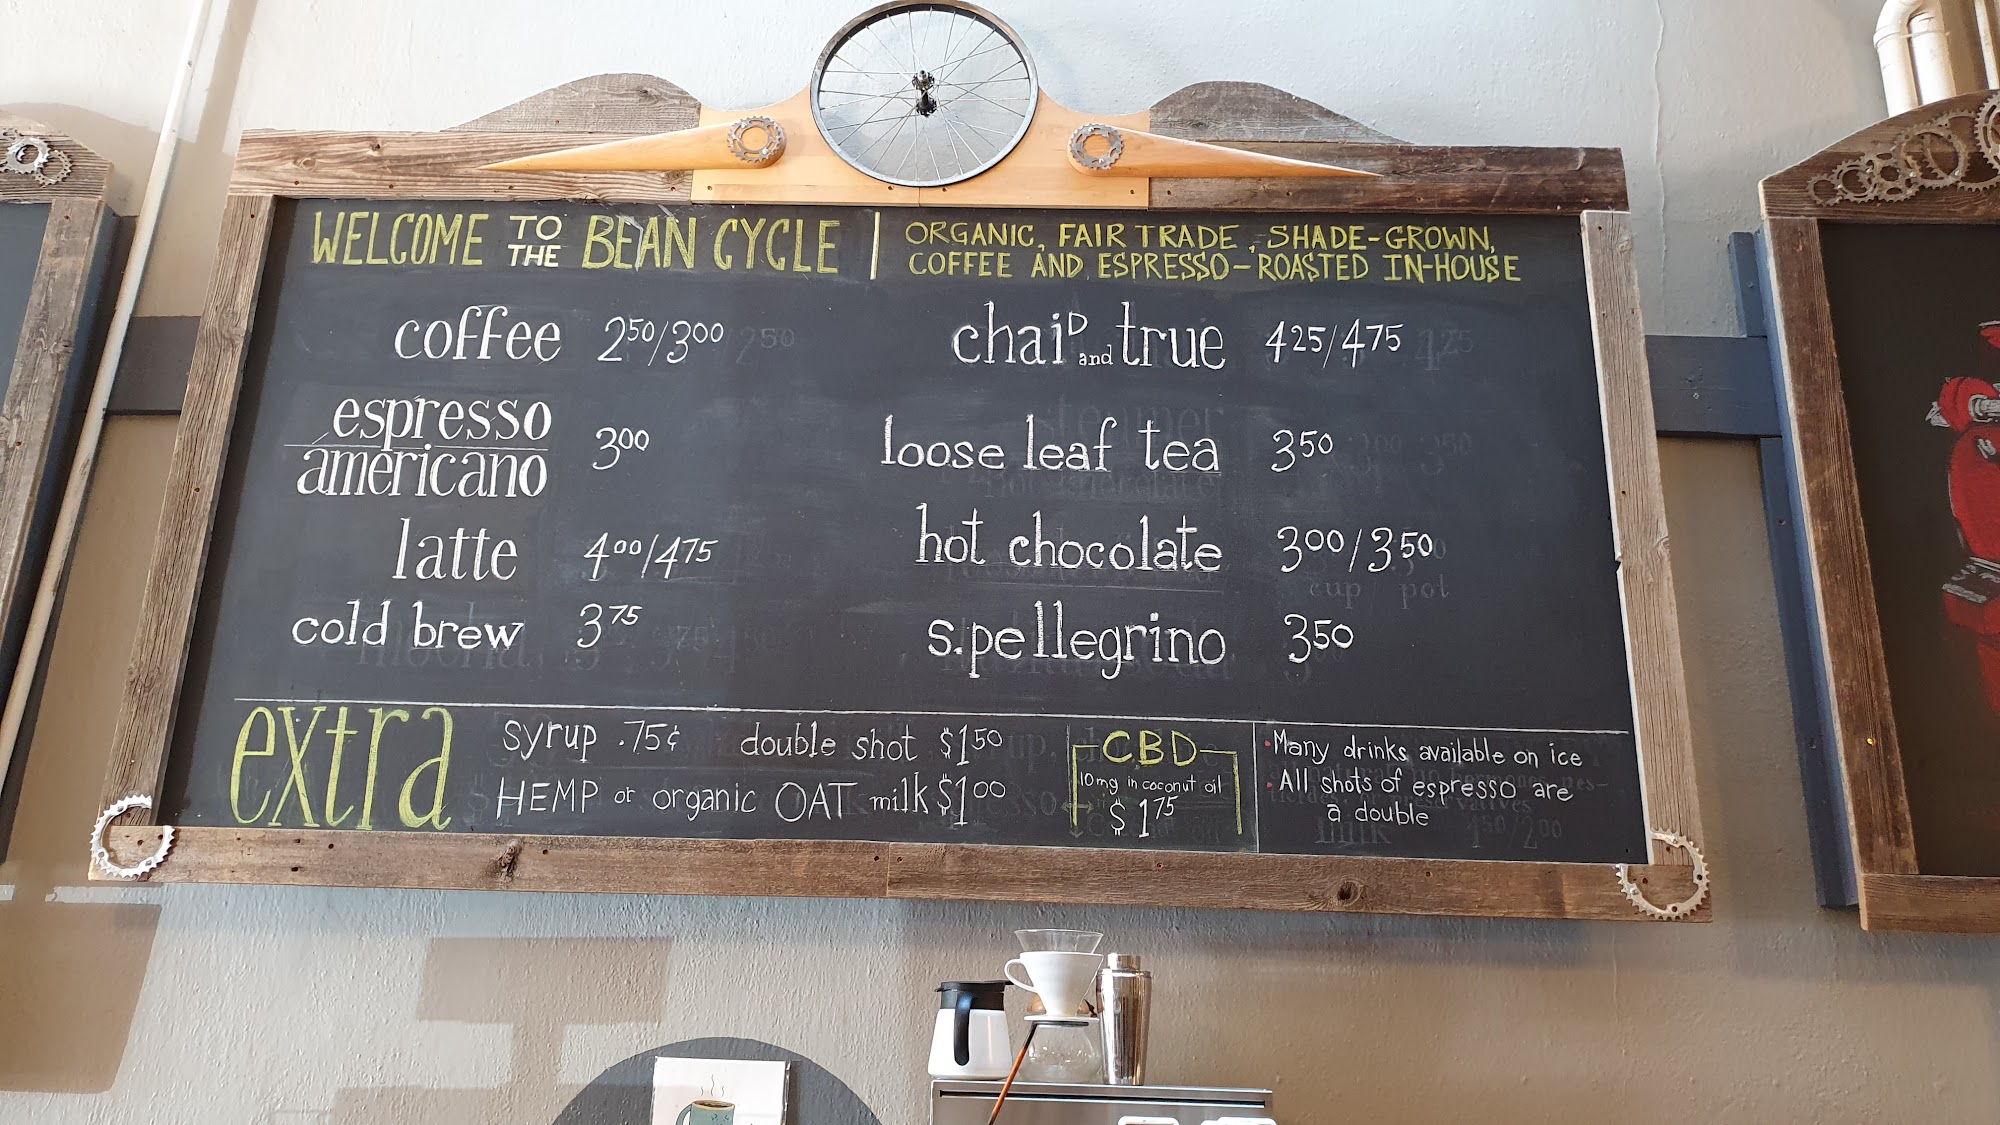 WELCOME TO THE BEAN CYCLE
ORGANIC, FAIR TRADE, SHADE-GROWN,
COFFEE AND ESPRESSO-ROASTED IN-HOUSE
coffee 2.50/3.00
espresso
americano 3.00
latte 4.00/4.75
cold brew 3.75
chai'D and true 4.25/4.75
loose leaf tea 3.50
hot chocolate 3.00/3.50
cup / pot
s.pellegrino 3.50
extra
syrup .75¢ double shot $1.50
HEMP or organic OAT milk $1.00
CBD
10mg in coconut oil
$1.75
• Many drinks available on ice
• All shots of espresso are
a double